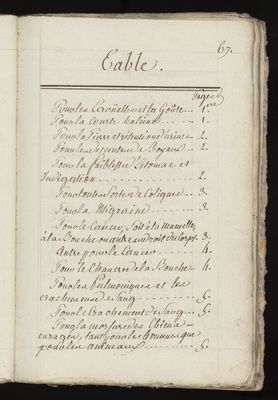 67.
Table.
Pages
Pour les Ecroüelles et la Goûte 1.ere
Pour la courte haleine 1.
Pour la Pierre et rétention d'urine 2.
Pour les descentes de Boyaux 2.
Pour la faiblesse d'Estomac et
Indigestion 2.
Pour toutes Sortes de Coliques 3.
Pour la Migraine 3.
Pour le Cancer, soit à la Mamelle,
à la Bouche ou autre endroit du Corps 3.
Autre pour le Cancer 4.
Pour le Chancre de la Bouche 4.
Pour les Pulmoniques et les
crachements de Sang 5.
Pour le Crachement de Sang 5.
Pour la morsure des Chiens
enragés, tant pour les hommes que
pour les animaux 5.